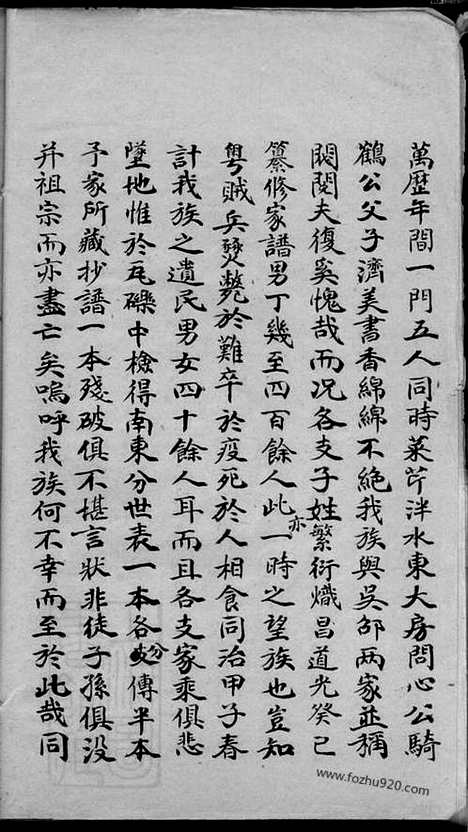 萬歷年間一門五人同時采芹泮水東大房問心公騎
鶴公父子濟美書香綿綿不絕我族與吳邵兩家並稱
閥閱夫復奚愧哉而況各支子姓繁衍熾昌道光癸巳
纂修家譜男丁幾至四百餘人此亦一時之望族也豈知
粵賊兵燹斃於難卒於疫死於人相食同治甲子春
計我族之遺民男女四十餘人耳而且各支家乘俱悲
墮地惟於瓦礫中檢得南東分世表一本各分支傳半本
予家所藏抄譜一本殘破俱不堪言狀非徒子孫俱沒
并祖宗而亦盡亡矣嗚呼我族何不幸而至於此哉同
www.fozhu920.com